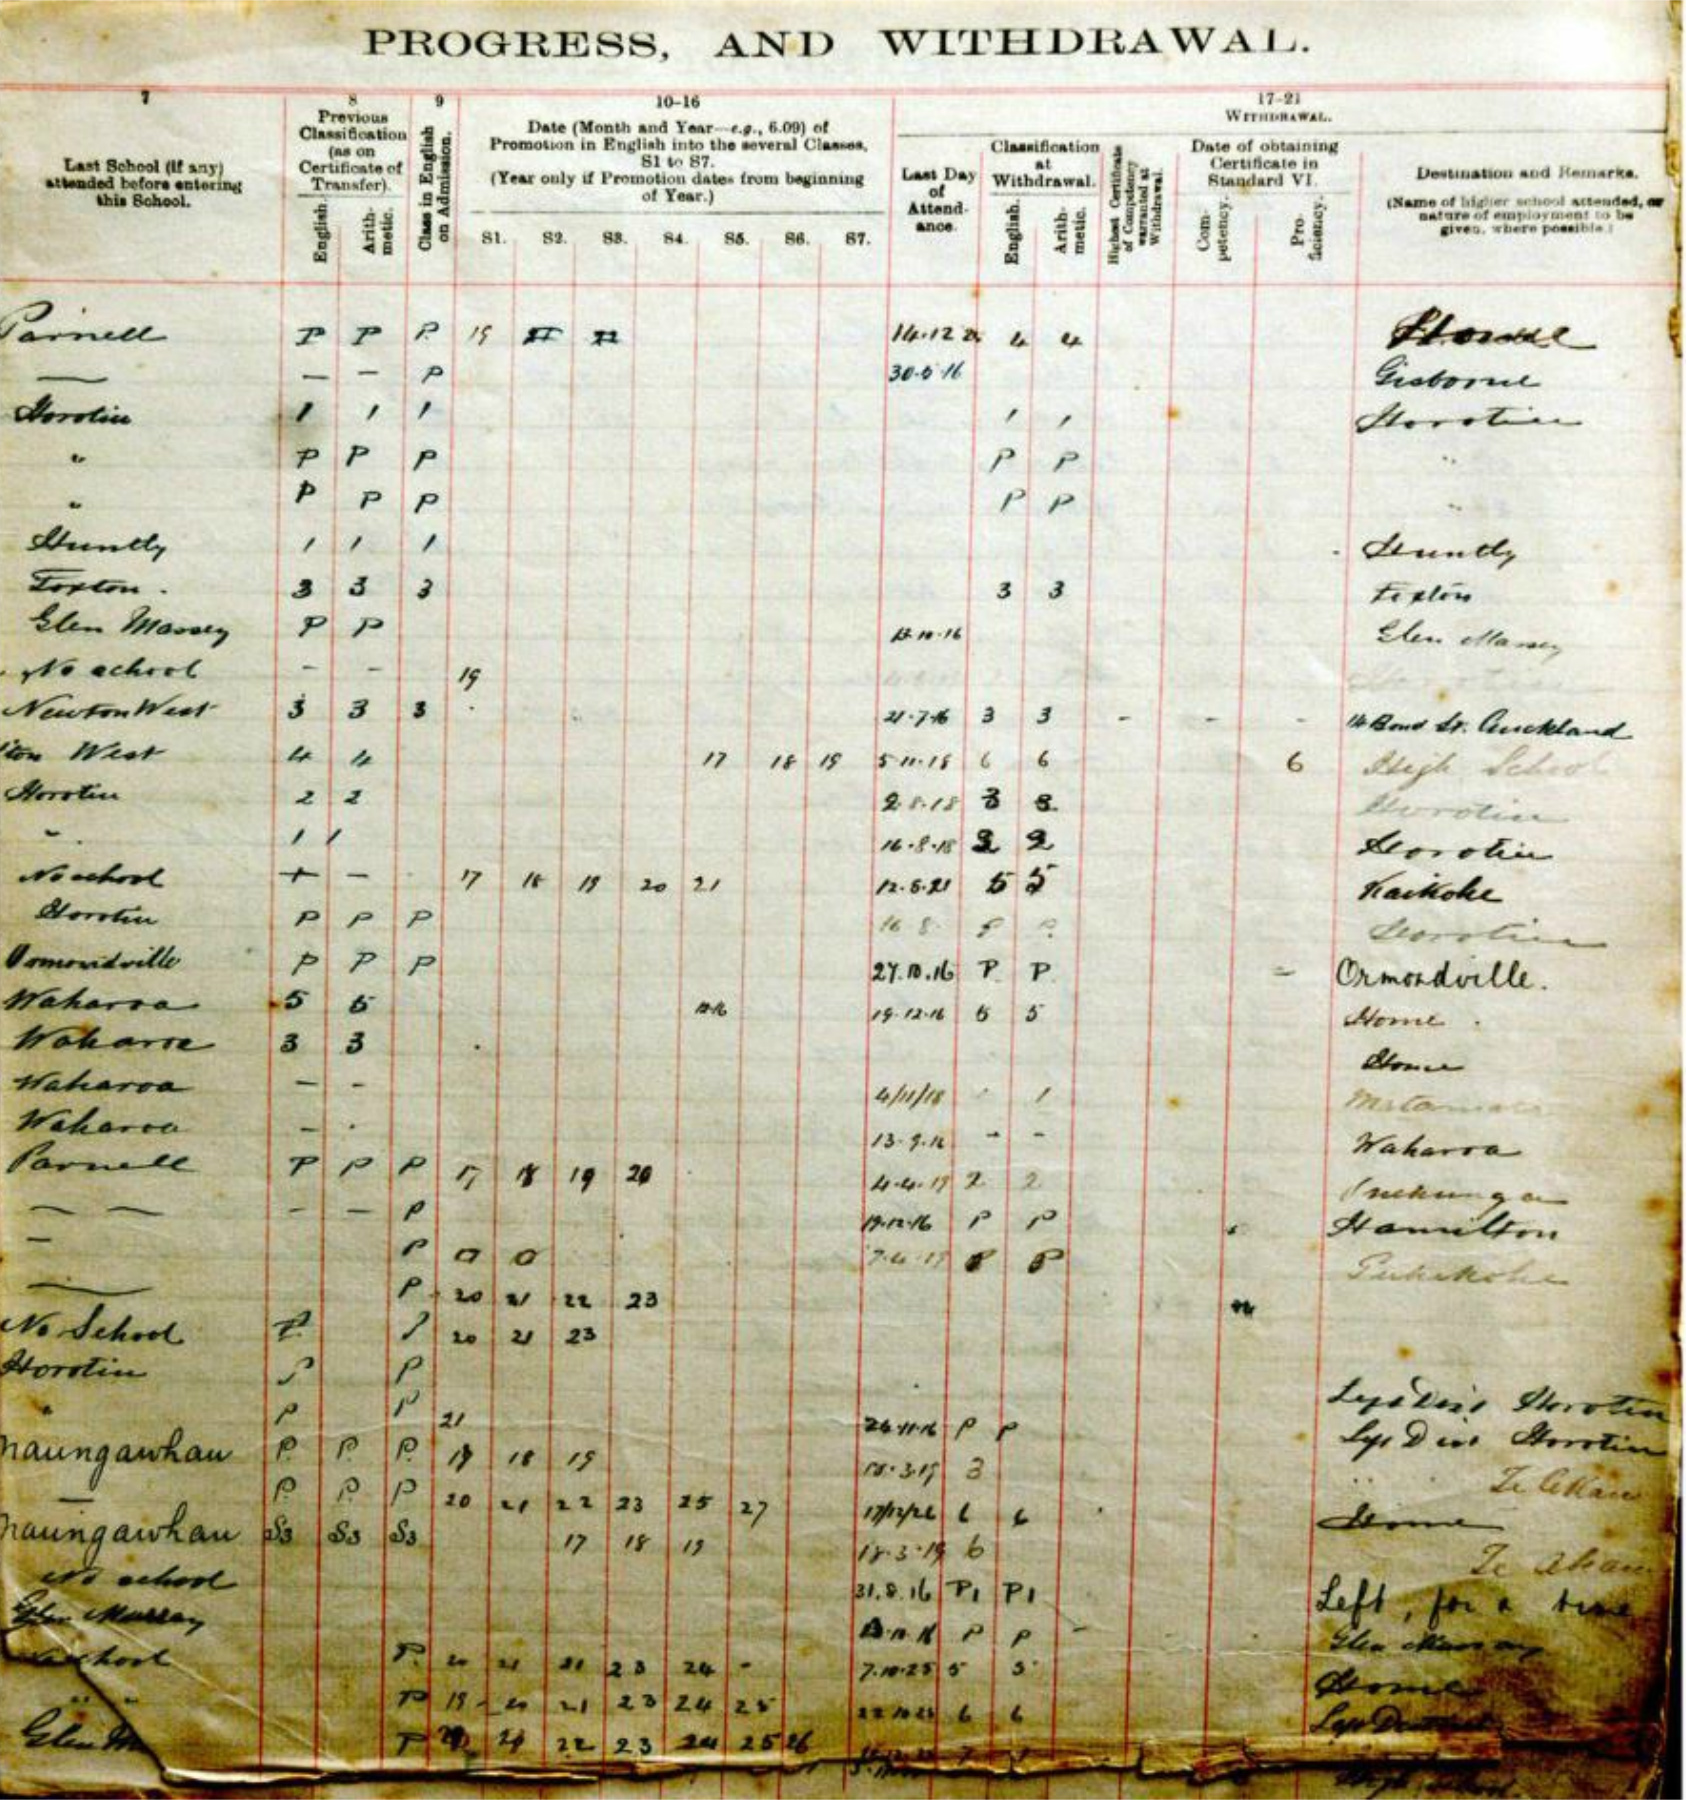 PROGRESS, AND WITHDRAWAL.
7 8 9 10-16 17-21
Last School (if any) attended before entering this School.
Previous Classification (as on Certificate of Transfer).
English. Arithmetic.
Class in English on Admission.
Date (Month and Year—e.g., 6.09) of Promotion in English into the several Classes, S1 to S7.
(Year only if Promotion dates from beginning of Year.)
S1. S2. S3. S4. S5. S6. S7.
WITHDRAWAL.
Last Day of Attendance.
Classification at Withdrawal.
English. Arithmetic.
Highest Certificate of Competency warranted at Withdrawal.
Date of obtaining Certificate in Standard VI.
Competency. Proficiency.
Destination and Remarks.
(Name of higher school attended, or nature of employment to be given, where possible.)
Parnell P P P 19 4 4
— — – P 30.5.16 Gisborne
Horotiu 1 1 1 1 1 Horotiu
" P P P P P "
" P P P P P "
Huntly 1 1 1 Huntly
Foxton. 3 3 3 3 3 Foxton
Glen Massey P P Glen Massey
No school – – 19
Newton West 3 3 3 21.7.16 3 3 – – – 14 Bond St. Auckland
West 4 4 17 18 19 5.11.18 6 6 6 High School
Horotiu 2 2 2.8.18 3 3 Horotiu
" 1 1 16.8.18 2 2 Horotiu
No school – 17 18 19 20 21 12.5.21 5 5 Kaikohe
Horotiu P P P 16 8 Horotiu
Ormondville P P P 27.10.16 P P – Ormondville.
Waharoa 5 5 19.12.16 5 5 Home
Waharoa 3 3 Home
Waharoa – – 4/11/18 1
Waharoa – 13.9.16 – – Waharoa
Parnell P P P 17 18 19 20 4.4.19 2 2 Onehunga
— — – – P 19.12.16 P P Hamilton
– P 0 0 P P Pukekohe
— P 20 21 22 23
No School P 20 21 23
Horotiu P P Horotiu
" P P 21 24.11.16 P P Horotiu
P P P 18 19 18.3.19 3
— P P P 20 21 22 23 25 27 17/12/26 6 6 Home
S3 S3 S3 17 18 19 18.3.19 6
No school 31.8.16 P1 P1 Left, for a time
Glen Murray P P – Glen
school P 20 21 23 24 – 7.10.25 5 5 Home
" " P 19 20 21 23 24 25 6 6
Glen P 22 23 24 25 26
High School.